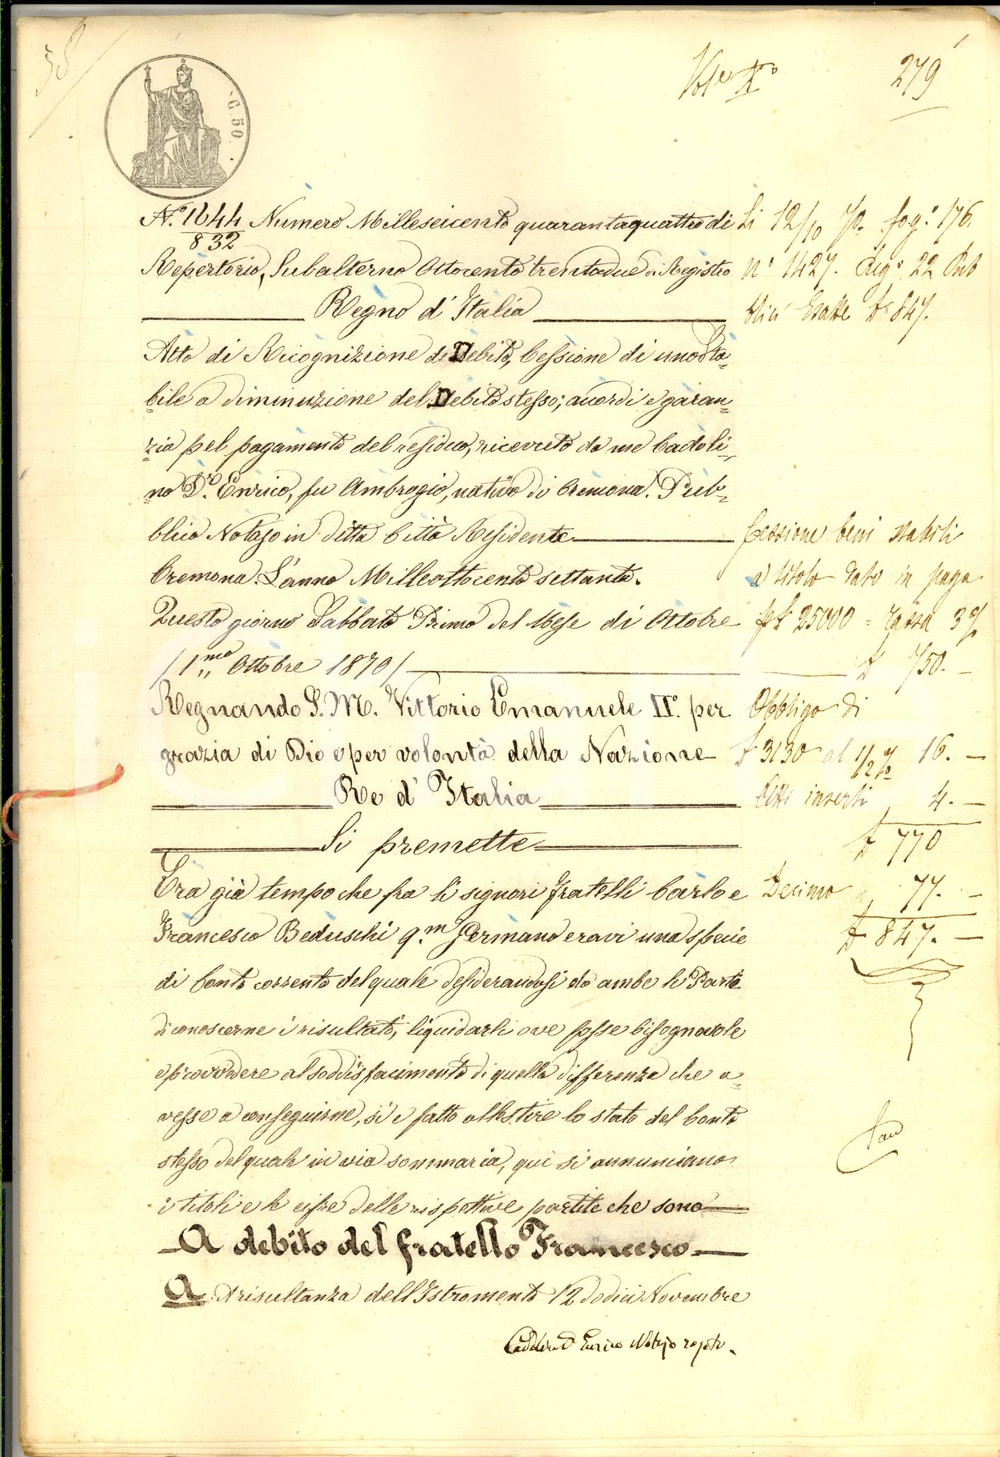 38
279
C. 50
N.° 1644 Numero Milleseicento quarantaquattro di
832
Repertorio, Subalterno Ottocento trentadue di Registro
Regno d'Italia
Atto di Ricognizione di Debito, Cessione di uno Sta-
bile a diminuzione del Debito stesso; accordi e garan-
zia pel pagamento del residuo, ricevuto da me Cadoli-
no D.r Enrico, fu Ambrogio, nativo di Cremona. Pub-
blico Notajo in ditta Città Residente
Cremona. L'anno Milleottocento settanta.
Questo giorno Sabbato Primo del Mese di Ottobre
/1.mo Ottobre 1870/
Regnando S. M. Vittorio Emanuele II.° per
grazia di Dio e per volontà della Nazione
Re d'Italia
Si premette
Era già tempo che fra li signori fratelli Carlo e
Francesco Beduschi q.m Germano eravi una specie
di Conto corrente del quale desiderandosi da ambe le Parti
di conoscerne i risultati, liquidarli ove fosse bisognevole
e provvedere al soddisfacimento di quella differenza che a-
vesse a conseguirne, si è fatto allestire lo stato del Conto
stesso del quale in via sommaria, qui si annunciano
i titoli e le cifre delle rispettive partite che sono
A debito del fratello Francesco
A. A risultanza dell'Istromento 12 dodici Novembre
Cadolino D. Enrico Notajo
Li 12/10 70. fog.° 176.
n° 1427. 22 Pub
blici Esatte £ 847.
Cessione beni stabili
a titolo dato in paga
per £ 25000 = tassa 3 %
£ 750. —
Obbligo di
£ 3130 al 1/2 % 16. —
Atti inserti 4. —
£ 770
Decimo 77. —
£ 847. —